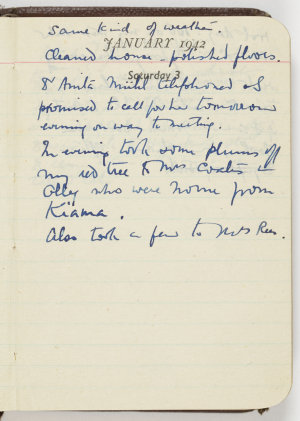 Same kind of weather.
JANUARY 1942
Cleaned house - polished floors.
Saturday 3
& Anita Mühl telephoned & I
promised to call for her tomorrow
evening on way to meeting.
In evening took some plums off
my red tree to Mrs Coates &
Olley who were home from
Kiama.
Also took a few to Mrs Rees.